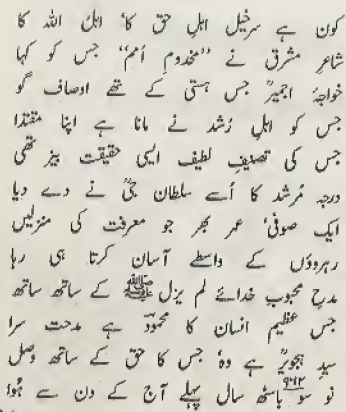 کون ہے سرخیل اہلِ حق کا، اہل اللہ کا
شاعرِ مشرق نے "مخدومِ امم" جس کو کہا
خواجۂ اجمیرؒ جس ہستی کے تھے اوصاف گو
جس کو اہلِ رُشد نے مانا ہے اپنا مقتدا
جس کی تصنیفِ لطیف ایسی حقیقت بیز تھی
درجہ مُرشد کا اُسے سلطان جیؒ نے دے دیا
ایک صوفی، عمر بھر جو معرفت کی منزلیں
رہروؤں کے واسطے آسان کرتا ہی رہا
مدحِ محبوبِ خدائے لم یزل ﷺ کے ساتھ ساتھ
جس عظیم انسان کا محمودؔ ہے مدحت سرا
سیدِ ہجویرؒ ہے وہ، جس کا حق کے ساتھ وصل
نو سو باسٹھ ۹۶۲ سال پہلے آج کے دن سے ہُوا